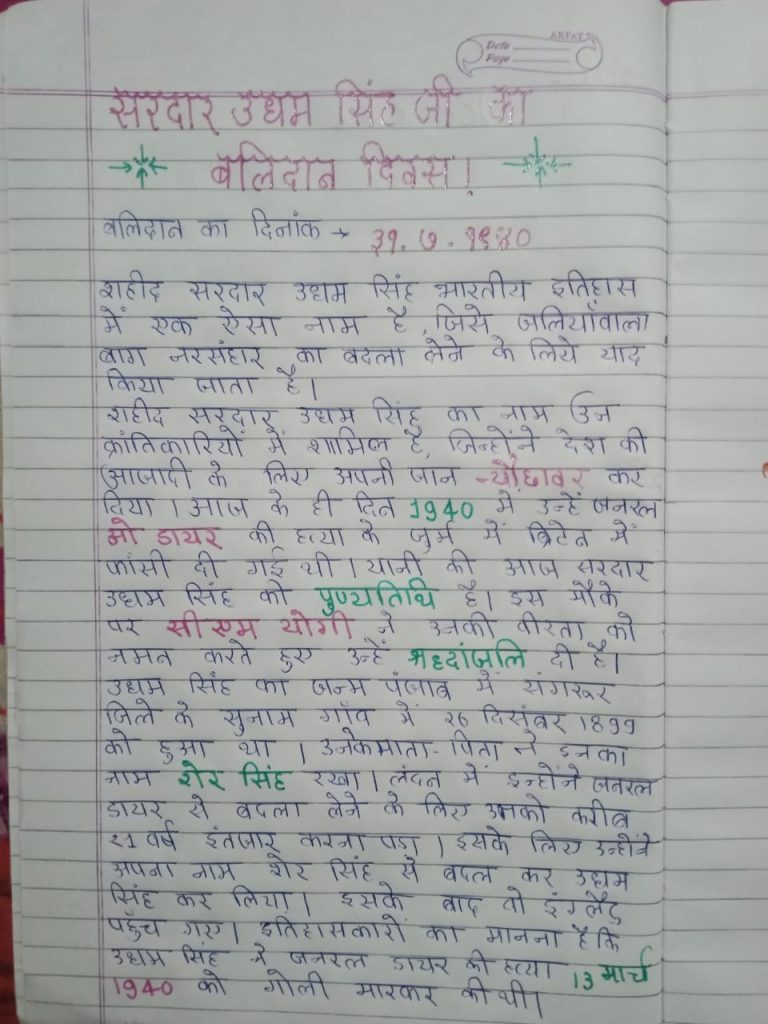 ARFATS
Date
Page
सरदार उधम सिंह जी का
बलिदान दिवस!
बलिदान का दिनांक → ३१. ७. १९४०
शहीद सरदार उधम सिंह भारतीय इतिहास
में एक ऐसा नाम है, जिसे जलियाँवाला
बाग नरसंहार का बदला लेने के लिये याद
किया जाता है।
शहीद सरदार उधम सिंह का नाम उन
क्रांतिकारियों में शामिल है, जिन्होंने देश की
आजादी के लिए अपनी जान न्यौछावर कर
दिया। आज के ही दिन 1940 में उन्हें जनरल
ओ डायर की हत्या के जुर्म में ब्रिटेन में
फांसी दी गई थी। यानी की आज सरदार
उधम सिंह की पुण्यतिथि है। इस मौके
पर सीएम योगी ने उनकी वीरता को
नमन करते हुए उन्हें श्रद्दांजलि दी है।
उधम सिंह का जन्म पंजाब में संगरूर
जिले के सुनाम गाँव में २६ दिसंबर 1899
को हुआ था। उनके माता-पिता ने इनका
नाम शेर सिंह रखा। लंदन में इन्होंने जनरल
डायर से बदला लेने के लिए उनको करीब
२१ वर्ष इंतजार करना पड़ा। इसके लिए उन्होंने
अपना नाम शेर सिंह से बदल कर उधम
सिंह कर लिया। इसके बाद वो इंग्लैंड
पहुँच गए। इतिहासकारों का मानना है कि
उधम सिंह ने जनरल डायर की हत्या 13 मार्च
1940 को गोली मारकर की थी।